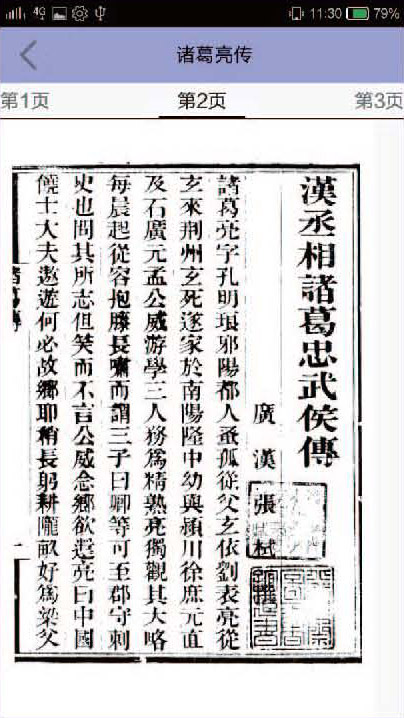 4G
11:30
79%
诸葛亮传
第1页
第2页
第3页
漢丞相諸葛忠武侯傳
廣漢張栻
諸葛亮字孔明琅邪陽都人蚤孤從父玄依劉表亮從
玄來荆州玄死遂家於南陽隆中幼與潁川徐庶元直
及石廣元孟公威游學三人務爲精熟亮獨觀其大略
每晨起從容抱膝長嘯而謂三子曰卿等可至郡守刺
史也問其所志但笑而不言公威念鄉欲還亮曰中國
饒士大夫遨遊何必故鄉耶稍長躬耕隴畝好爲梁父